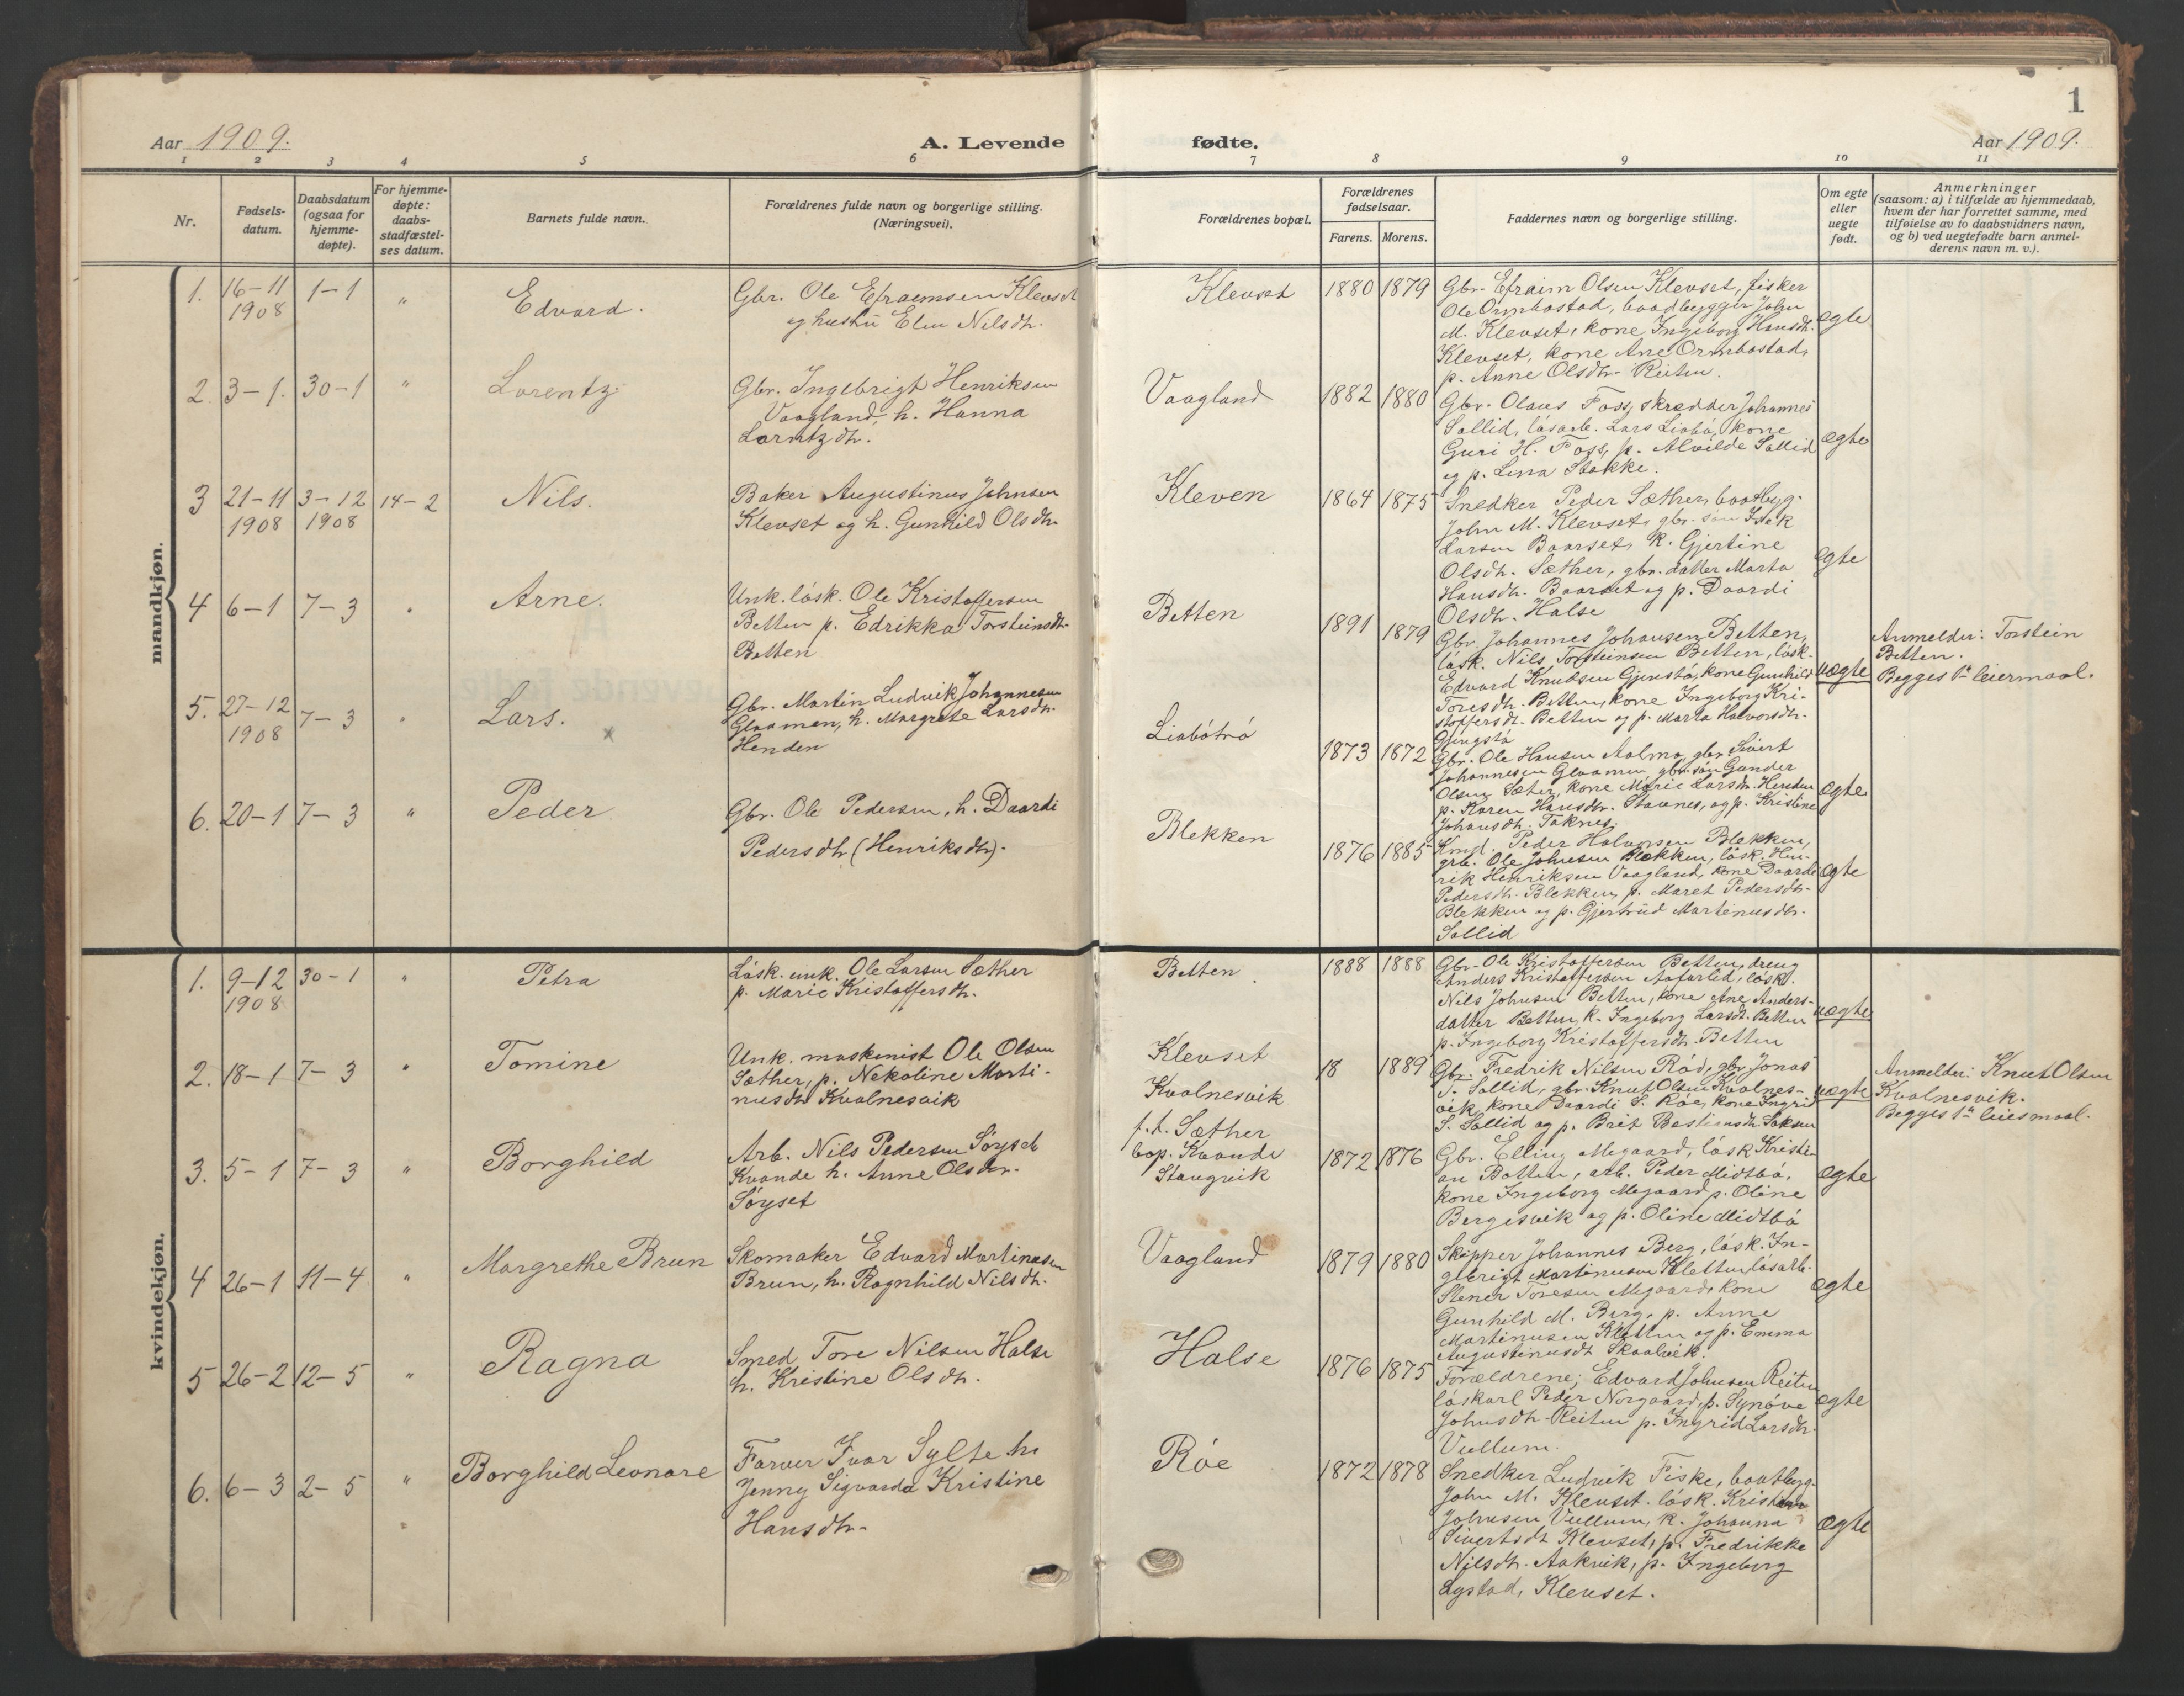 1
Aar 1909.
A. Levende
fødte.
Aar 1909.
1 2 3 4 5 6 7 8 9 10 11
Nr.
Fødsels-
datum.
Daabsdatum
(ogsaa for
hjemme-
døpte).
For hjemme-
døpte:
daabs-
stadfæstel-
ses datum.
Barnets fulde navn.
Forældrenes fulde navn og borgerlige stilling.
(Næringsvei).
Forældrenes bopæl.
Forældrenes
fødselsaar.
Farens. Morens.
Faddernes navn og borgerlige stilling.
Om egte
eller
uegte
født.
Anmerkninger
(saasom: a) i tilfælde av hjemmedaab,
hvem der har forrettet samme, med
tilføielse av to daabsvidners navn,
og b) ved uegtefødte barn anmel-
derens navn m. v.).
mandkjøn.
1. 16-11 1-1 "
1908
Edvard.
Gbr. Ole Efraemsen Klevset
og hustru Elen Nilsdtr.
Klevset 1880 1879
Gbr. Efraim Olsen Klevset, fisker
Ole Ormbostad, baadbygger John
M. Klevset, kone Ingeborg Hansdtr.
Klevset, kone Ane Ormbostad,
p. Anne Olsdtr. Reiten.
egte
2. 3-1. 30-1 "
Lorentz
Gbr. Ingebrigt Henriksen
Vaagland, h. Hanna
Lorntzdtr.
Vaagland 1882 1880
Gbr. Olaus Foss, skrædder Johannes
Sollid, løsarb. Lars Liabø, kone
Guri H. Foss, p. Alvilde Sollid
og p. Lina Stokke.
egte
3 21-11 3-12 14-2
1908 1908
Nils.
Baker Augustinus Johnsen
Klevset og h. Gunhild Olsdtr.
Kleven 1864 1875
Snedker Peder Sæther, baatbyg.
John M. Klevset, gbr. søn Isak
Larsen Baarset, k. Gjertine
Olsdtr. Sæther, gbr. datter Marta
Hansdtr. Baarset og p. Daardi
Olsdtr. Halse
egte
4 6-1 7-3 "
Arne.
Unk. løsk. Ole Kristoffersen
Betten p. Edrikka Torsteinsdtr.
Betten
Betten 1891 1879
Gbr. Johannes Johansen Betten,
løsk. Nils Torsteinsen Betten, løsk.
Edvard Knudsen Gjengstø, kone Gunhild
Toresdtr. Betten, kone Ingeborg Kri-
stoffersdtr. Betten og p. Marta Halvorsdtr.
Gjengstø
uegte
Anmelder: Torstein
Betten.
Begges 1ste leiermaal.
5. 27-12 7-3 "
1908
Lars. x
Gbr. Martin Ludvik Johannesen
Glaamen, h. Margrete Larsdtr.
Henden
Liabøtrø 1873 1872
Gbr. Ole Hansen Aalmo, gbr. Sivert
Johannesen Glaamen, gbr. søn Gunder
Olsen Sæter, kone Marie Larsdtr. Henden
p. Karen Hansdtr. Stavnes, og p. Kristine
Johansdtr. Taknes.
egte
6. 20-1 7-3 "
Peder
Gbr. Ole Pedersen, h. Daardi
Pedersdtr (Henriksdtr).
Blekken 1876 1885
Peder Halvorsen Blekken,
gbr. Ole Johnsen Blekken, løsk. Hen-
rik Henriksen Vaagland, kone Daardi
Pedersdtr. Blekken, p. Maret Pedersdtr.
Blekken og p. Gjertrud Martinusdtr.
Sollid
egte
kvindekjøn.
1. 9-12 30-1 "
1908
Petra
Løsk. unk. Ole Larsen Sæther
p. Marie Kristoffersdtr.
Betten 1888 1888
Gbr. Ole Kristoffersen Betten, dreng
Anders Kristoffersen Aafarlid, løsk.
Nils Johnsen Betten, kone Ane Anders-
datter Betten, k. Ingeborg Larsdtr. Betten
p. Ingeborg Kristoffersdtr. Betten
uegte
2. 18-1 7-3 "
Tomine
Unk. maskinist Ole Olsen
Sæther, p. Nekoline Marti-
nusdtr Kvalnesvik
Klevset
Kvalnesvik
18 1889
Gbr. Fredrik Nilsen Rød, gbr. Jonas
J. Sollid, gbr. Knut Olsen Kvalnes-
vik, kone Daardi S. Røe, kone Ingrid
S. Sollid og p. Brit Bastiansdtr.
uegte
Anmelder: Knut Olsen
Kvalnesvik.
Begges 1ste leiesmaal.
3. 5-1 7-3 "
Borghild
Arb. Nils Pedersen Søyset
Kvande h. Anne Olsdtr.
Søyset
f.t. Sæther
bop. Kvande
Stangvik
1872 1876
Gbr. Elling Megaard, løsk Kristi-
an Botten, arb. Peder Midtbø,
kone Ingeborg Megaard, p. Oline
Bergesvik og p. Oline Midtbø
egte
4 26-1 11-4 "
Margrethe Brun
Skomaker Edvard Martinusen
Brun, h. Ragnhild Nilsdtr.
Vaagland 1879 1880
Skipper Johannes Berg, løsk. In-
gebrigt Martinusen Kletten, løsarb.
Stener Toresen Megaard, kone
Gunhild M. Berg, p. Anne
Martinusen Kletten og p. Emma
Augustinusdtr Skaalvik.
egte
5 26-2 12-5 "
Ragna
Smed Tore Nilsen Halse
h. Kristine Olsdtr.
Halse 1876 1875
Forældrene; Edvard Johnsen Reiten
løskarl Peder Norgaard, p. Synøve
Johnsdtr. Reiten p. Ingrid Larsdtr.
Vullum.
egte
6. 6-3 2-5 "
Borghild Leonore
Farver Ivar Sylte h.
Jenny Sigvarda Kristine
Hansdtr.
Røe 1872 1878
Snedker Ludvik Fiske, baatbyg.
John M. Klevset, løsk. Kristian
Johnsen Vullum, k. Johanna
Sivertsdtr Klevset, p. Fredrikke
Nilsdtr. Aakvik, p. Ingeborg
Lystad, Klevset.
egte